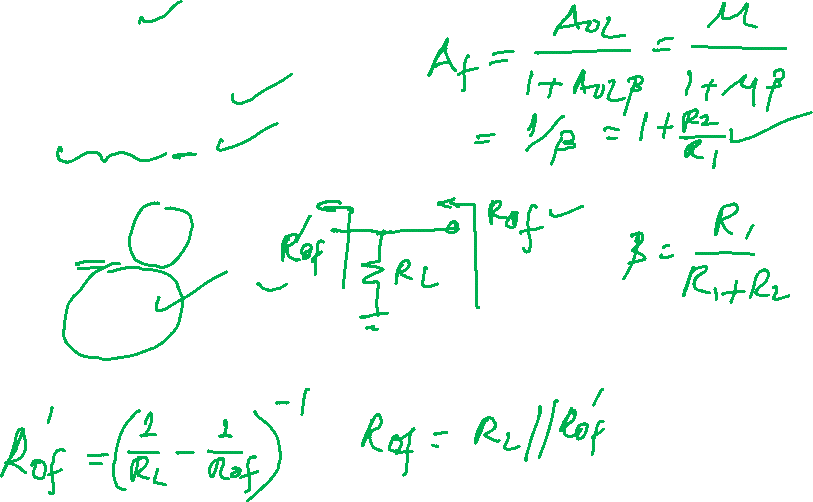 A_f = A_OL / (1 + A_OL β) = μ / (1 + μ β)
= 1/β = 1 + R_2/R_1
R'_of R_L R_of
β = R_1 / (R_1 + R_2)
R'_of = (1/R_L - 1/R_of)^-1 R_of = R_L // R'_of